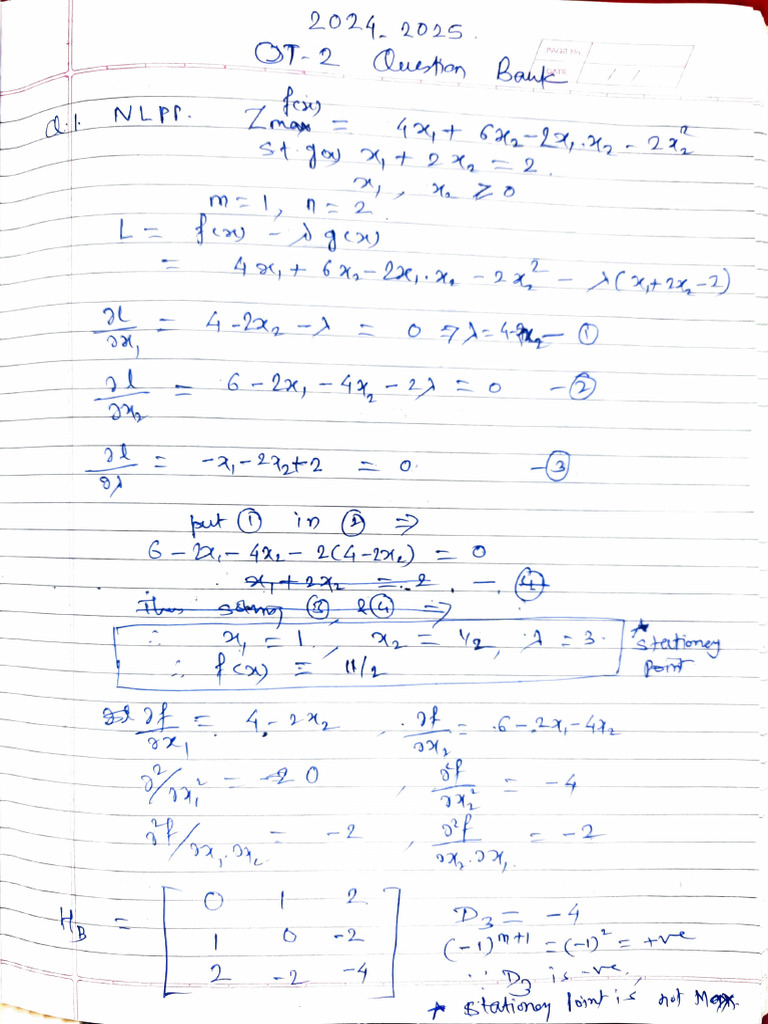 2024-2025.
OT-2 Question Bank
PAGE No.
DATE / /
Q.1. NLPP. Zmax f(x) = 4x₁ + 6x₂ - 2x₁.x₂ - 2x₂²
st. g(x) x₁ + 2x₂ = 2.
x₁, x₂ ≥ 0
m = 1, n = 2
L = f(x) - λ g(x)
= 4x₁ + 6x₂ - 2x₁.x₂ - 2x₂² - λ(x₁+2x₂-2)
∂L/∂x₁ = 4 - 2x₂ - λ = 0 ⇒ λ = 4-2x₂ - ①
∂l/∂x₂ = 6 - 2x₁ - 4x₂ - 2λ = 0 - ②
∂l/∂λ = -x₁ - 2x₂ + 2 = 0. - ③
put ① in ② ⇒
6 - 2x₁ - 4x₂ - 2(4-2x₂) = 0
x₁ + 2x₂ = 2. - ④
Thus solving ③ & ④ ⇒
∴ x₁ = 1, x₂ = 1/2, λ = 3. * stationey
∴ f(x) = 11/2 point
∂f/∂x₁ = 4 - 2x₂ , ∂f/∂x₂ = 6 - 2x₁ - 4x₂
∂²/∂x₁² = 0 , ∂²f/∂x₂² = -4
∂²f/∂x₁.∂x₂ = -2 , ∂²f/∂x₂.∂x₁ = -2
H_B = [ 0 1 2 D₃ = -4
1 0 -2 (-1)^(m+1) = (-1)² = +ve
2 -2 -4 ] ∴ D₃ is -ve,
* stationey Point is not Max.